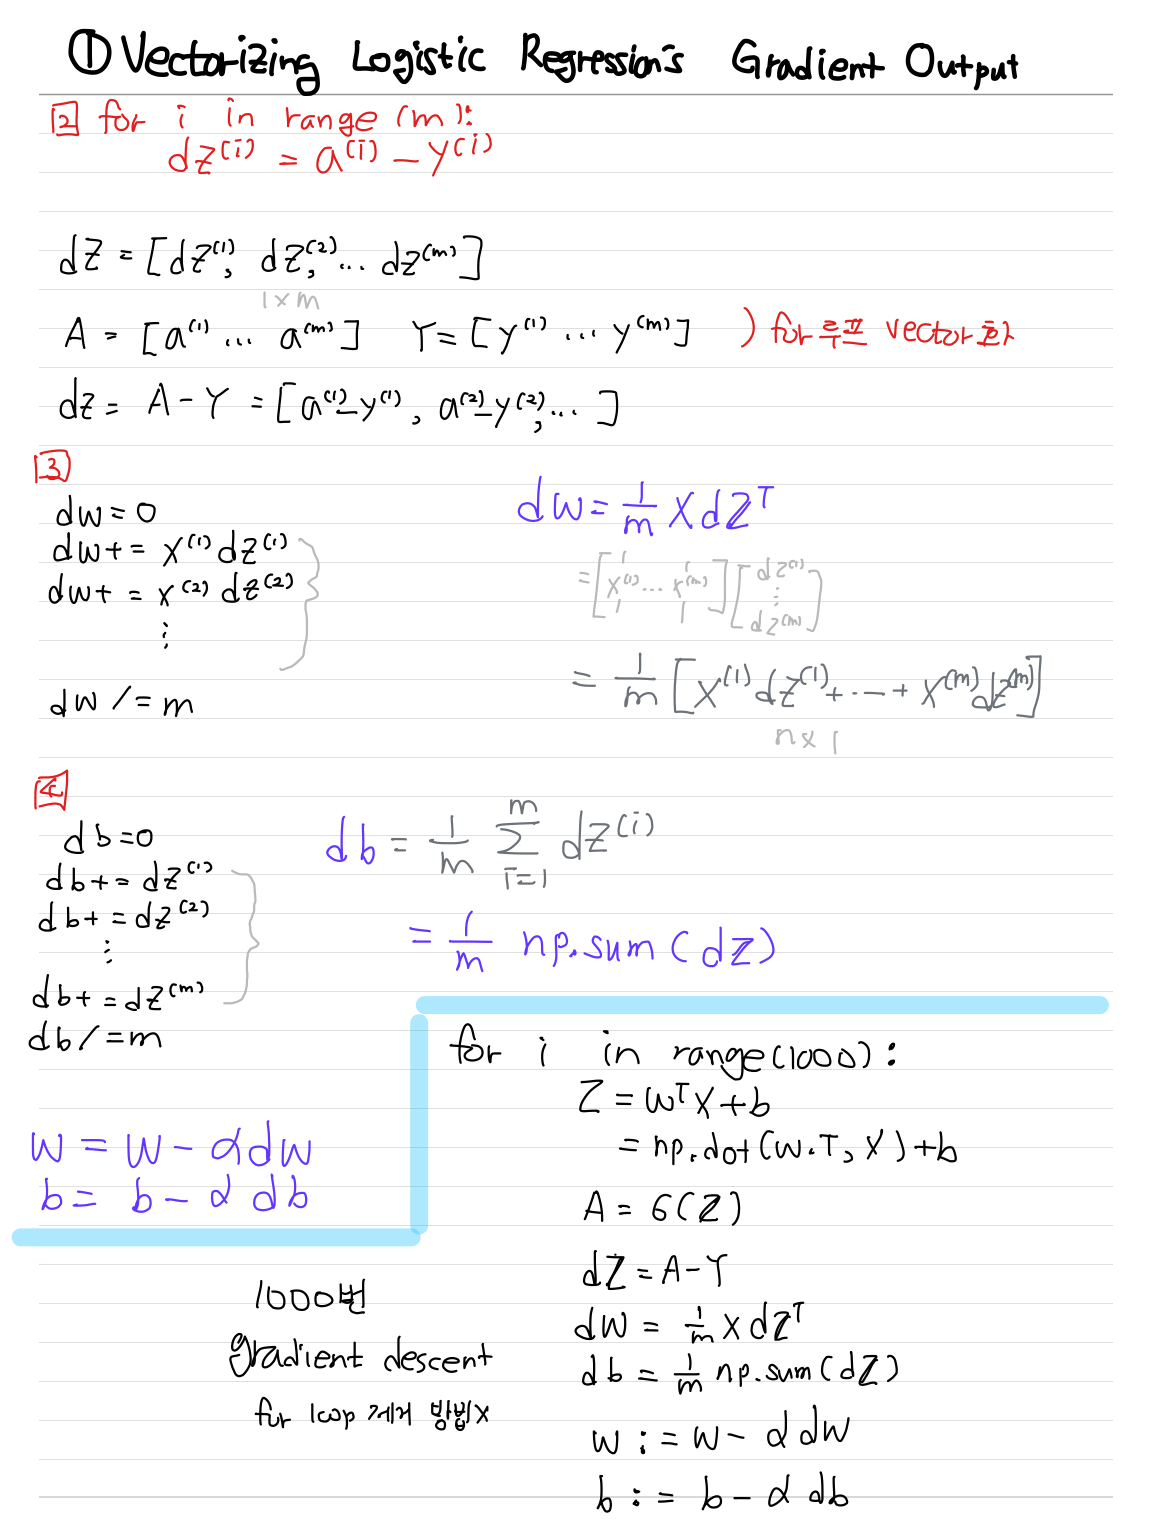 ① Vectorizing Logistic Regression's Gradient Output
2 for i in range (m):
dz⁽ⁱ⁾ = a⁽ⁱ⁾ - y⁽ⁱ⁾
dZ = [dz⁽¹⁾, dz⁽²⁾, ... dz⁽ᵐ⁾]
1 x m
A = [a⁽¹⁾ ... a⁽ᵐ⁾] Y = [y⁽¹⁾ ... y⁽ᵐ⁾] ) for 루프 vector화
dz = A - Y = [a⁽¹⁾-y⁽¹⁾, a⁽²⁾-y⁽²⁾, ... ]
3
dw = 0
dw += x⁽¹⁾ dz⁽¹⁾
dw += x⁽²⁾ dz⁽²⁾
⋮
dw /= m
dw = 1/m X dZᵀ
= [x⁽¹⁾ ... x⁽ᵐ⁾] [dz⁽¹⁾ ⋮ dz⁽ᵐ⁾]
= 1/m [x⁽¹⁾dz⁽¹⁾ + ... + x⁽ᵐ⁾dz⁽ᵐ⁾]
n x 1
4
db = 0
db += dz⁽¹⁾
db += dz⁽²⁾
⋮
db += dz⁽ᵐ⁾
db /= m
db = 1/m Σᵢ₌₁ᵐ dz⁽ⁱ⁾
= 1/m np.sum(dz)
w = w - αdw
b = b - α db
for i in range(1000):
Z = wᵀX + b
= np.dot(w.T, X) + b
A = σ(Z)
dZ = A - Y
dw = 1/m X dZᵀ
db = 1/m np.sum(dZ)
w := w - α dw
b := b - α db
1000번
gradient descent
for loop 제거 방법x